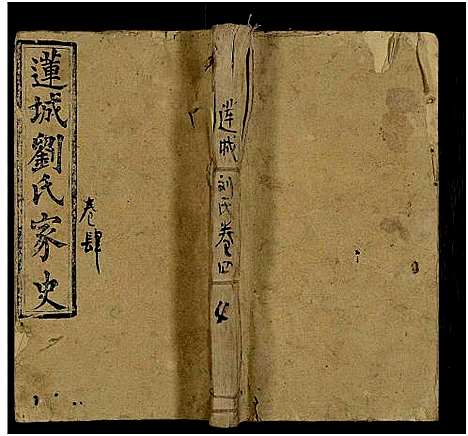 蓮城劉氏家史
卷肆
莲城
刘氏卷四
4